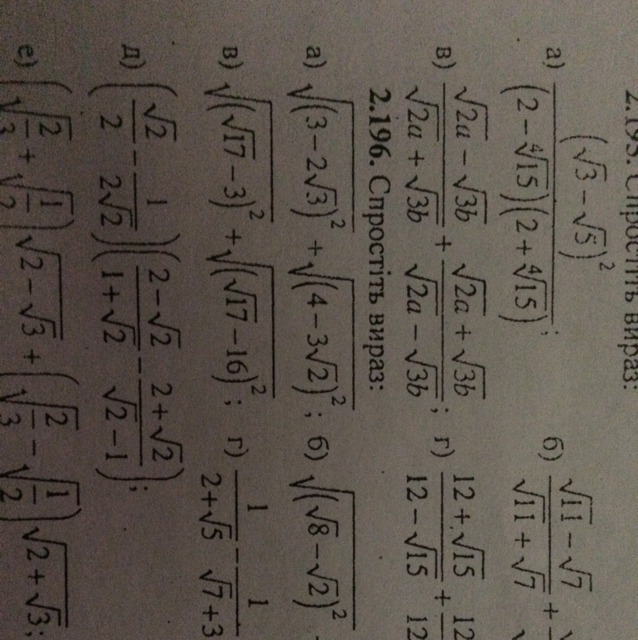 2.195. Спростіть вираз:
а) (√3 − √5)² / ((2 − ∜15)(2 + ∜15)); б) (√11 − √7)/(√11 + √7) +
в) (√2a − √3b)/(√2a + √3b) + (√2a + √3b)/(√2a − √3b); г) (12 + √15)/(12 − √15) + 12
2.196. Спростіть вираз:
а) √(3 − 2√3)² + √(4 − 3√2)²; б) √(√8 − √2)²
в) √(√17 − 3)² + √(√17 − 16)²; г) 1/(2+√5) − 1/(√7+3)
д) (√2/2 − 1/(2√2))((2 − √2)/(1 + √2) − (2 + √2)/(√2 − 1));
е) (√(2/3) + √(1/2))√(2 − √3) + (√(2/3) − √(1/2))√(2 + √3);